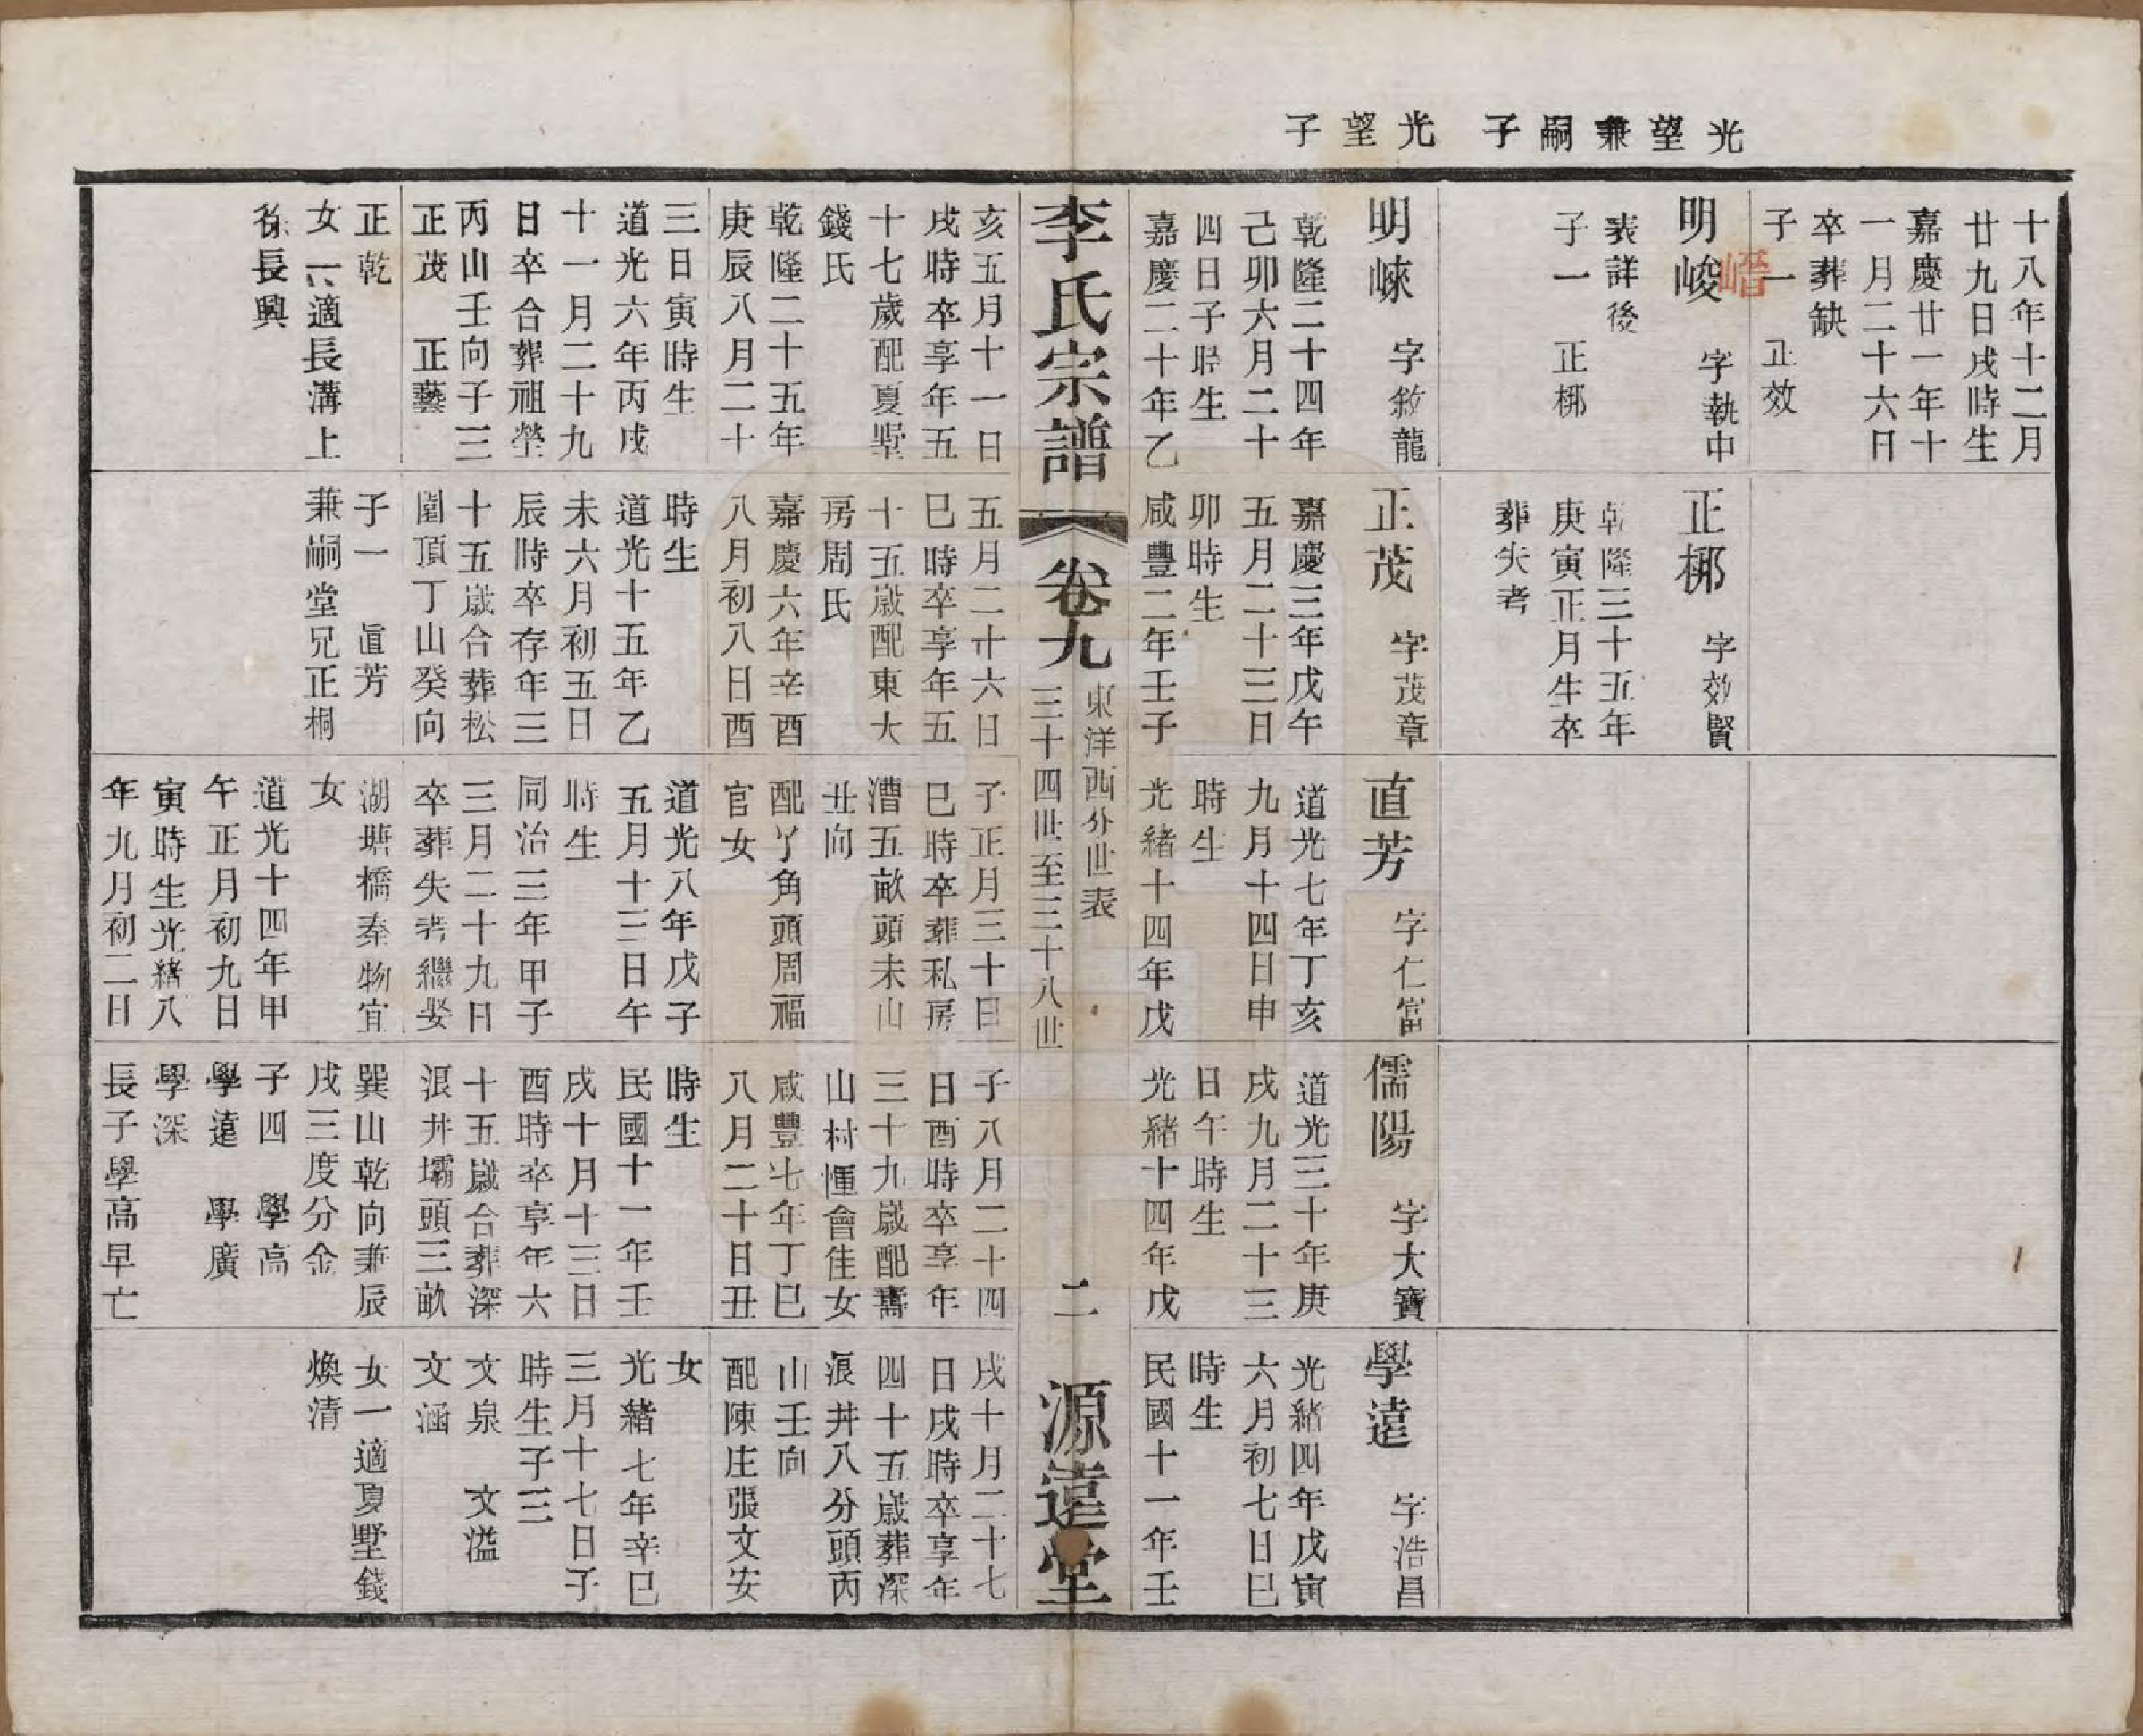 光望兼嗣子
光望子
十八年十二月
廿九日戌時生
嘉慶廿一年十
一月二十六日
卒葬缺
子一　正效
明峻　字執中
表詳後
子一　正梛
明崍　字敘龍
乾隆二十四年
己卯六月二十
四日子時生
嘉慶二十年乙
正梛　字效賢
乾隆三十五年
庚寅正月生卒
葬失考
正茂　字茂章
嘉慶三年戊午
五月二十三日
卯時生
咸豐二年壬子
直芳　字仁富
道光七年丁亥
九月十四日申
時生
光緒十四年戊
儒陽　字大寶
道光三十年庚
戌九月二十三
日午時生
光緒十四年戊
學遠　字浩昌
光緒四年戊寅
六月初七日巳
時生
民國十一年壬
李氏宗譜
卷九
東洋西分世表
三十四世至三十八世
二
源遠堂
亥五月十一日
戌時卒享年五
十七歲配夏墅
錢氏
乾隆二十五年
庚辰八月二十
三日寅時生
道光六年丙戌
十一月二十九
日卒合葬祖塋
丙山壬向子三
正茂　正藝
正乾
女一適長溝上
徐長興
五月二十六日
巳時卒享年五
十五歲配東大
房周氏
嘉慶六年辛酉
八月初八日酉
時生
道光十五年乙
未六月初五日
辰時卒存年三
十五歲合葬松
園頂丁山癸向
子一　直芳
兼嗣堂兄正桐
子正月三十日
巳時卒葬私房
漕五畝頭未山
丑向
配丫角頭周福
官女
道光八年戊子
五月十三日午
時生
同治三年甲子
三月二十九日
卒葬失考繼娶
湖塘橋秦物宜
女
道光十四年甲
午正月初九日
寅時生光緒八
年九月初二日
子八月二十四
日酉時卒享年
三十九歲配壽
山村惲會隹女
咸豐七年丁巳
八月二十日丑
時生
民國十一年壬
戌十月十三日
酉時卒享年六
十五歲合葬深
浪丼壩頭三畝
巽山乾向兼辰
戌三度分金
子四　學高
學遠　學廣
學深
長子學高早亡
戌十月二十七
日戌時卒享年
四十五歲葬深
浪丼八分頭丙
山壬向
配陳庄張文安
女
光緒七年辛巳
三月十七日子
時生子三
文泉　文溢
文涵
女一適夏墅錢
煥清